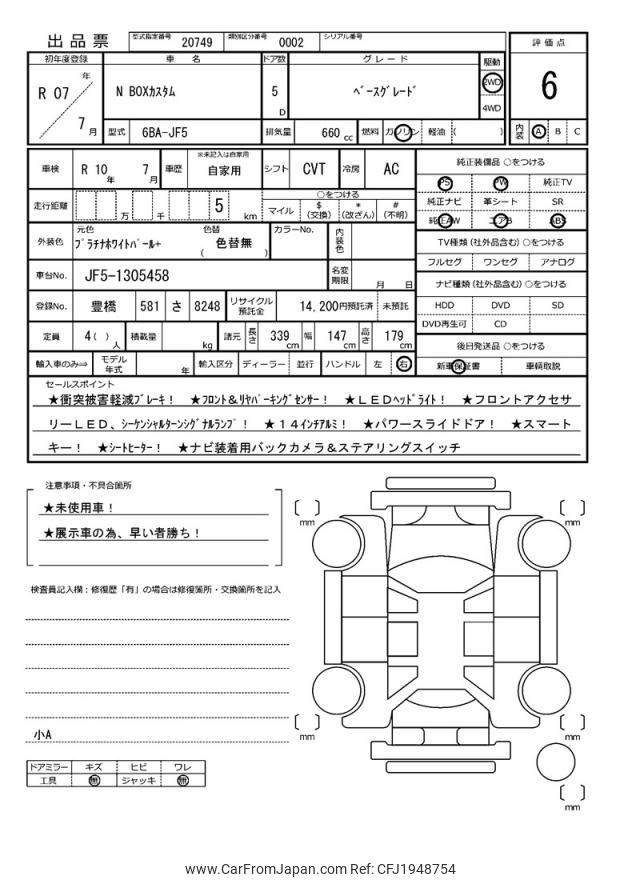 出品票 型式指定番号 20749 類別区分番号 0002 シリアル番号
評価点
6
内装 A B C
初年度登録 車名 ドア数 グレード 駆動
R 07 年 7 月 N BOXカスタム 5 D ﾍﾞｰｽｸﾞﾚｰﾄﾞ 2WD
4WD
型式 6BA-JF5 排気量 660 cc 燃料 ガソリン 軽油 ( )
車検 R 10 年 7 月 車歴 ※未記入は自家用 自家用 シフト CVT 冷房 AC
走行距離 万 千 5 km ○をつける
マイル $(交換) *(改ざん) #(不明)
外装色 元色 ﾌﾟﾗﾁﾅﾎﾜｲﾄﾊﾟｰﾙ+ 色替 ( 色替無 ) カラーNo. 内装色
車台No. JF5-1305458 名変期限 月 日
登録No. 豊橋 581 さ 8248 リサイクル預託金 14,200円預託済 未預託
定員 4( )人 積載量 kg 諸元 長さ 339 cm 幅 147 cm 高さ 179 cm
輸入車のみ⇒ モデル年式 年 輸入区分 ディーラー 並行 ハンドル 左 右
純正装備品 ○をつける
PS PW 純正TV
純正ナビ 革シート SR
純正AW エアB ABS
TV種類(社外品含む)○をつける
フルセグ ワンセグ アナログ
ナビ種類(社外品含む)○をつける
HDD DVD SD
DVD再生可 CD
後日発送品 ○をつける
新車保証書 車輌取説
セールスポイント
★衝突被害軽減ﾌﾞﾚｰｷ! ★ﾌﾛﾝﾄ&ﾘﾔﾊﾟｰｷﾝｸﾞｾﾝｻｰ! ★LEDﾍｯﾄﾞﾗｲﾄ! ★フロントアクセサ
リーLED、ｼｰｹﾝｼｬﾙﾀｰﾝｼｸﾞﾅﾙﾗﾝﾌﾟ! ★14ｲﾝﾁｱﾙﾐ! ★パワースライドドア! ★スマート
キー! ★ｼｰﾄﾋｰﾀｰ! ★ナビ装着用バックカメラ&ステアリングスイッチ
注意事項・不具合箇所
★未使用車!
★展示車の為、早い者勝ち!
検査員記入欄:修復歴「有」の場合は修復箇所・交換箇所を記入
小A
ドアミラー キズ ヒビ ワレ
工具 無 ジャッキ 無
[ ] mm
[ ] mm
[ ] mm
[ ] mm
[ ] mm
www.CarFromJapan.com Ref: CFJ1948754